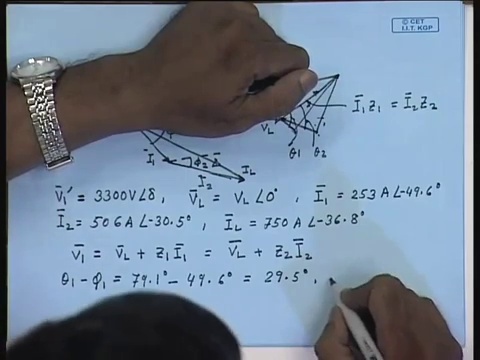 © CET
I.I.T. KGP
Ī₁Z₁ = Ī₂Z₂
V_L
θ₁ θ₂
Ī₁ φ₂ I_L
I₂
V̄₁' = 3300V∠δ , V̄_L = V_L∠0° , Ī₁ = 253 A∠-49.6°
Ī₂ = 506 A∠-30.5° , Ī_L = 750 A∠-36.8°
V̄₁ = V̄_L + Z₁Ī₁ = V̄_L + Z₂Ī₂
θ₁ - φ₁ = 79.1° - 49.6° = 29.5° ,